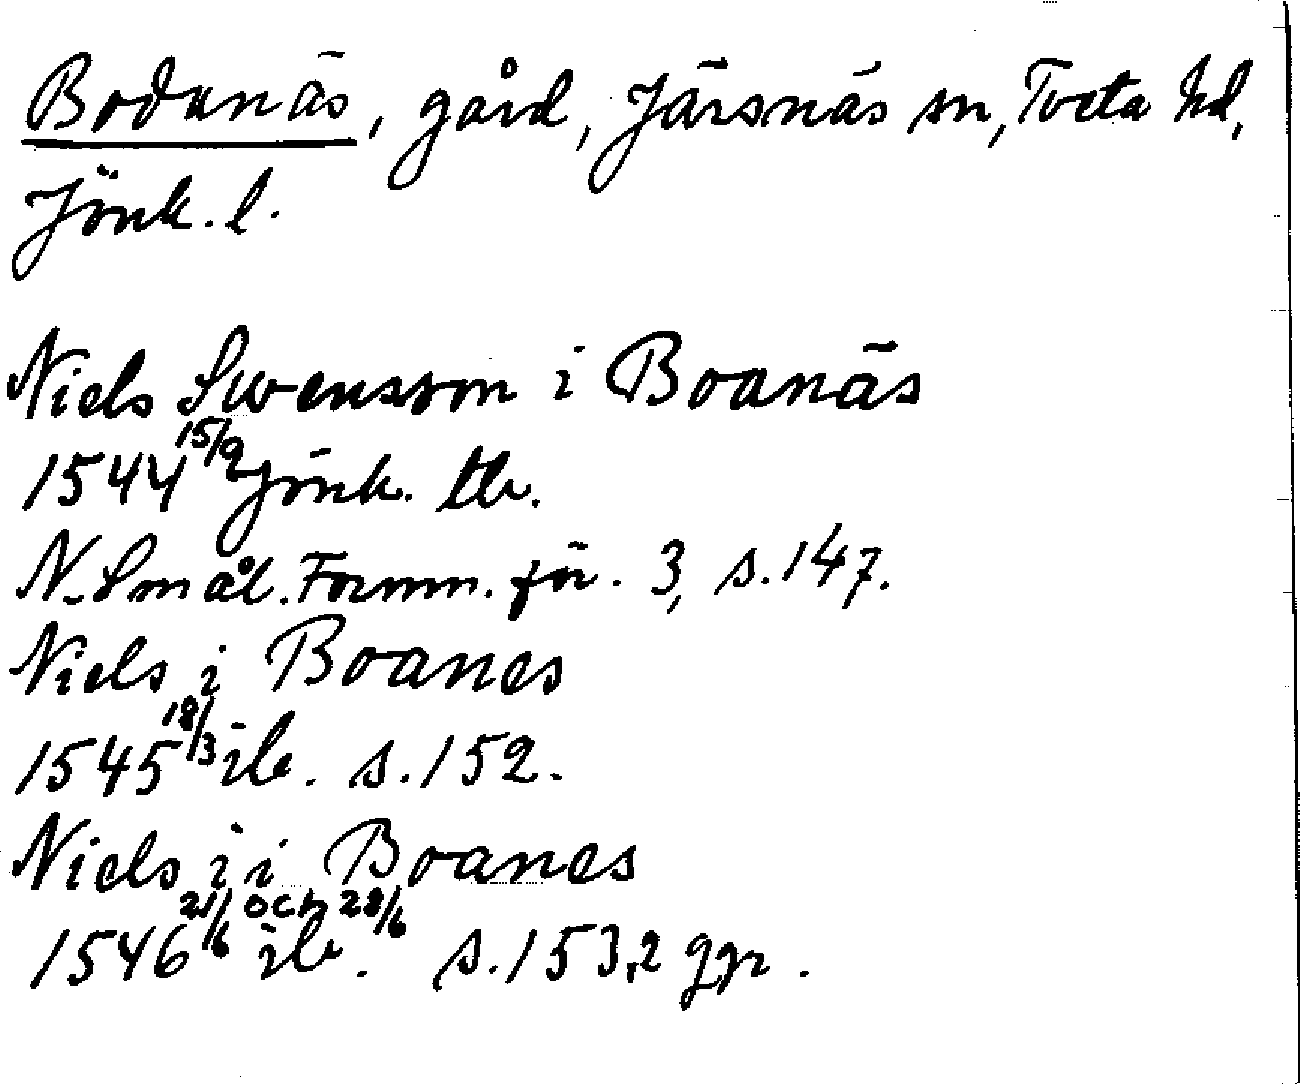 Bodanäs, gård, Järsnäs sn, Tveta hd,
Jönk. l.
Niels Swensson i Boanäs
1544 15/9 Jönk. tb.
N. Smål. Fornm. för. 3, s. 147.
Niels i Boanes
1545 18/3 ib. s. 152.
Niels i i Boanes
1546 21/6 och 28/6 ib. s. 153, 2 ggr.